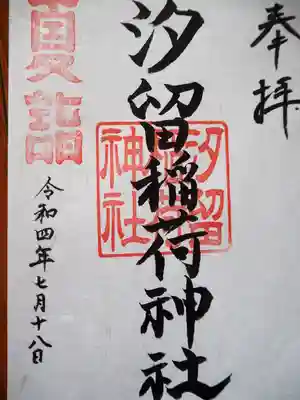 奉拝
汐留稲荷神社
汐留
稲荷
神社
令和四年七月十八日